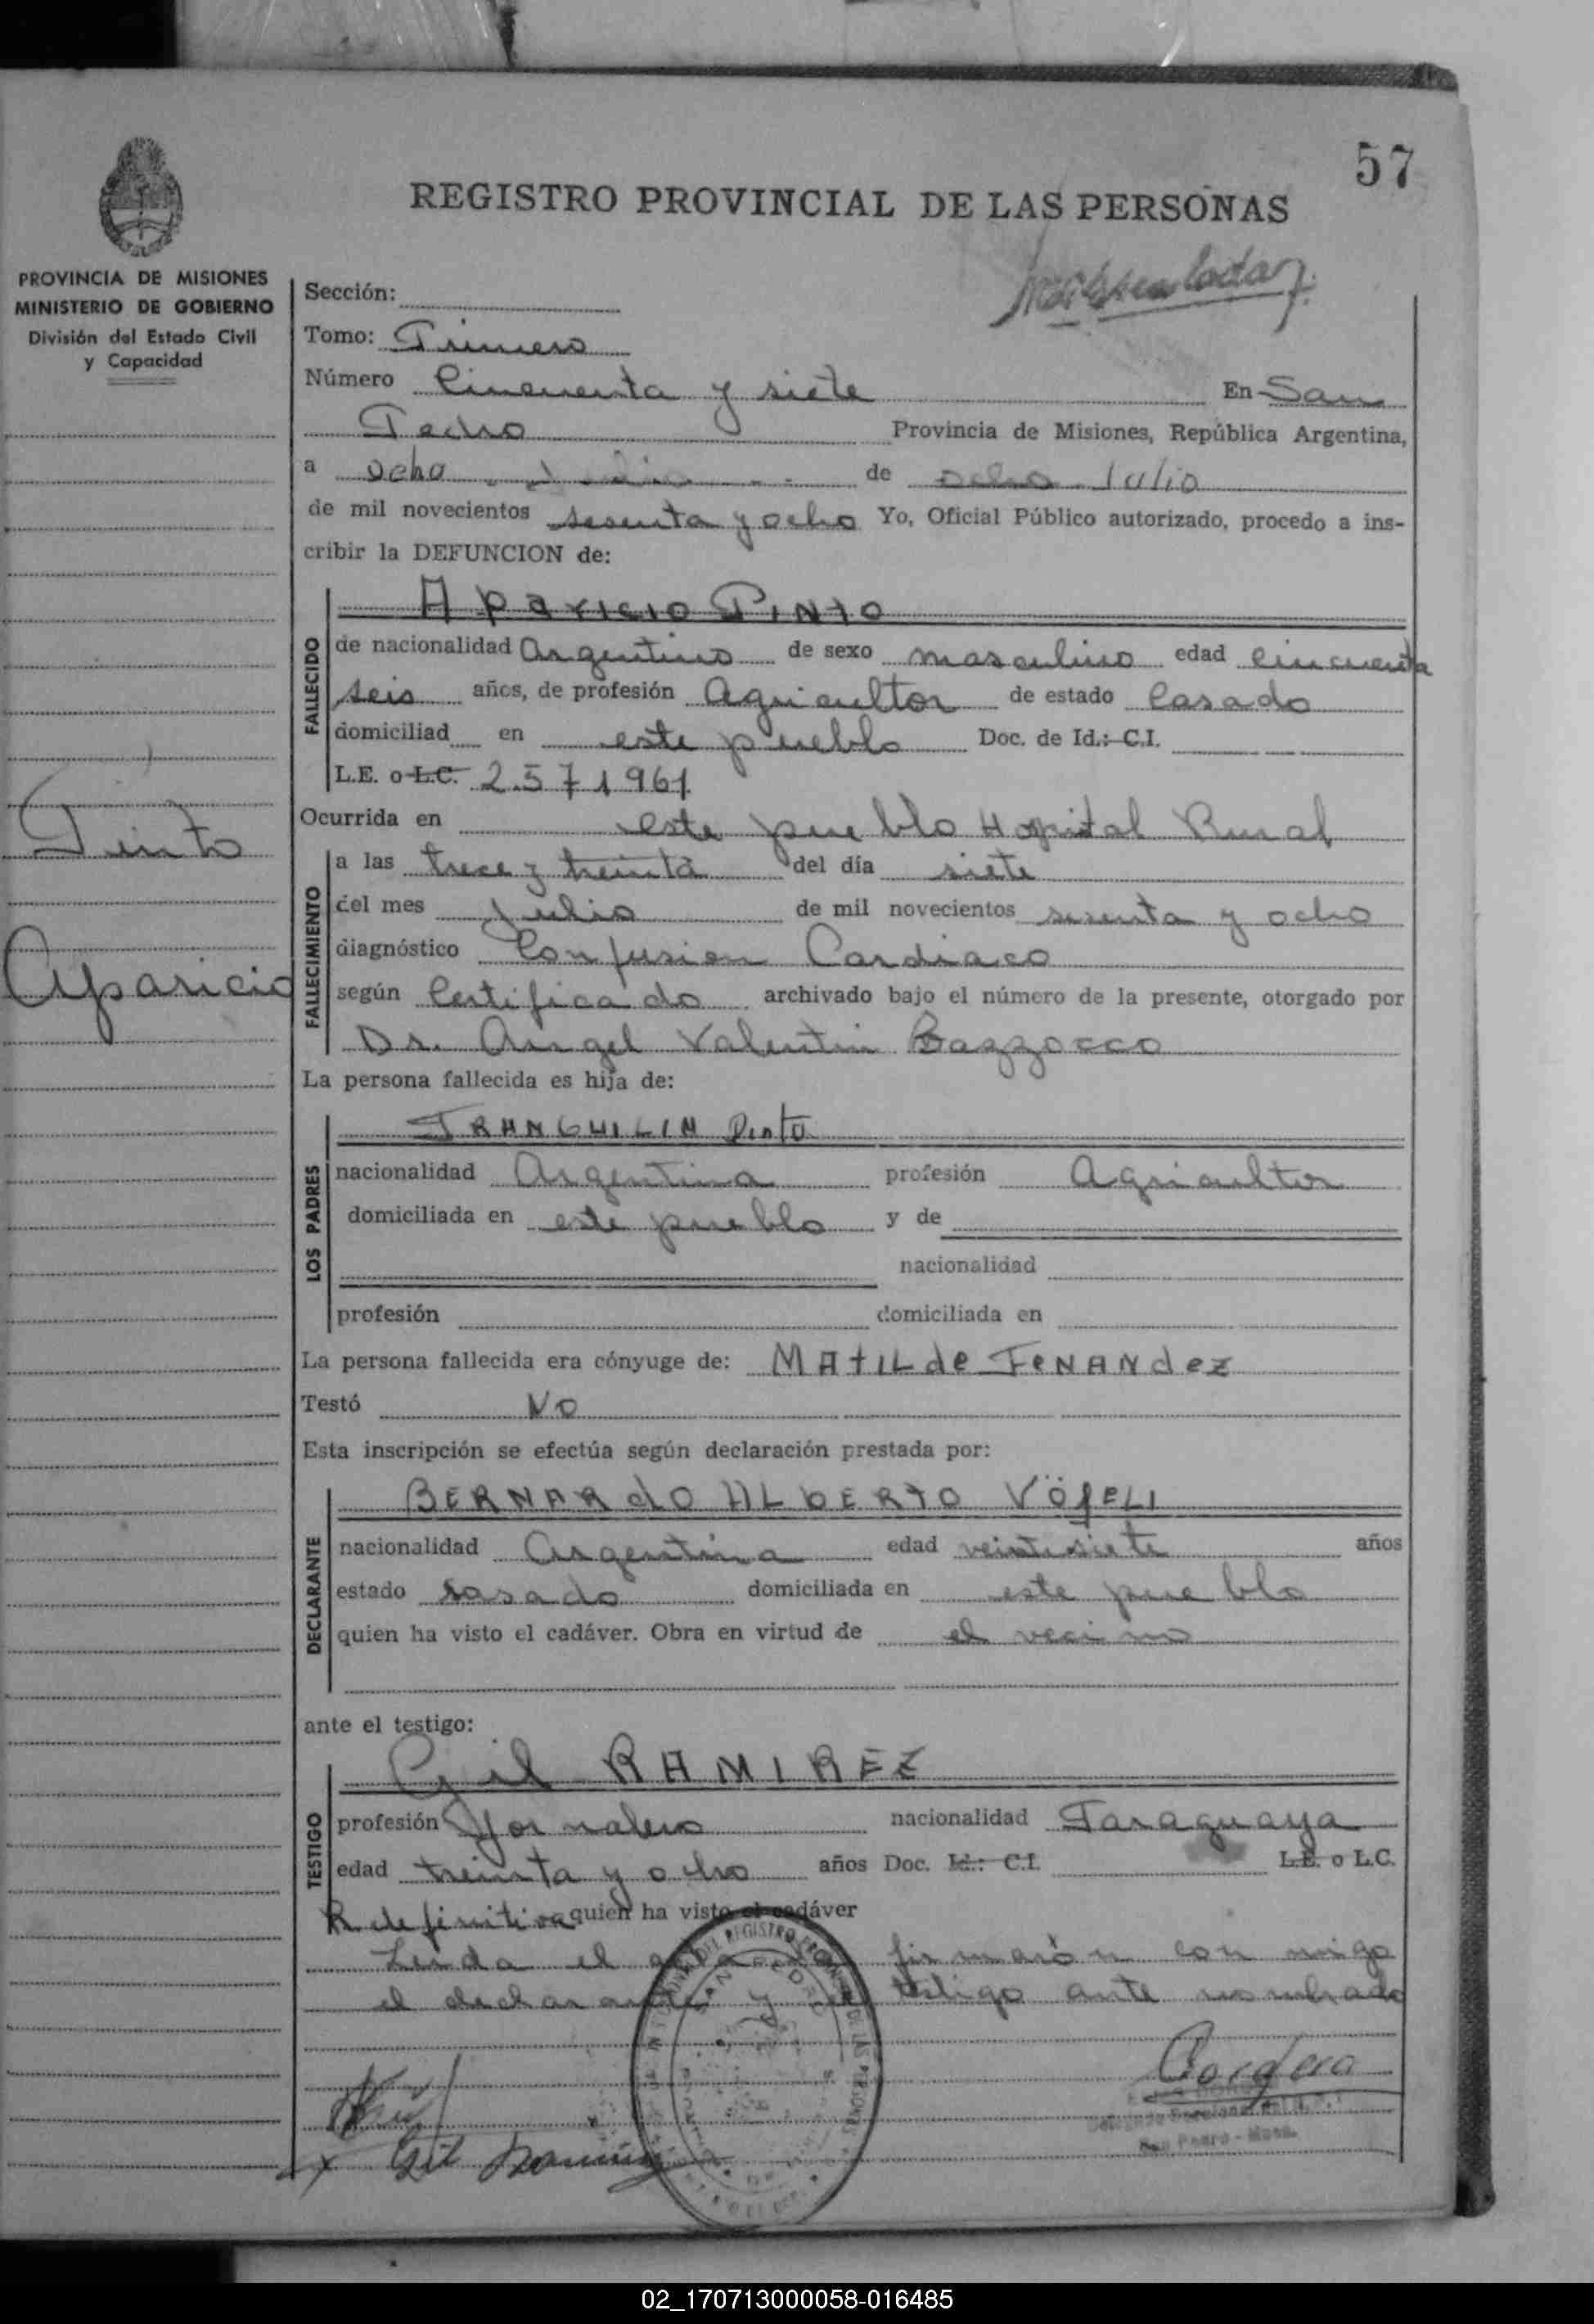 57
REGISTRO PROVINCIAL DE LAS PERSONAS
PROVINCIA DE MISIONES
MINISTERIO DE GOBIERNO
División del Estado Civil
y Capacidad
Sección:
Tomo: Primero
Número Cincuenta y siete En San
Pedro Provincia de Misiones, República Argentina,
a ocho de ocho Julio
de mil novecientos sesenta y ocho Yo, Oficial Público autorizado, procedo a ins-
cribir la DEFUNCION de:
Aparicio Pinto
FALLECIDO
de nacionalidad Argentino de sexo masculino edad cincuenta
seis años, de profesión Agricultor de estado Casado
domiciliad en este pueblo Doc. de Id.: C.I.
L.E. o L.C. 2.571961
Pinto
Aparicio
Ocurrida en este pueblo Hopital Rural
FALLECIMIENTO
a las trece y treinta del día siete
del mes Julio de mil novecientos sesenta y ocho
diagnóstico Confusion Cardiaco
según Certificado archivado bajo el número de la presente, otorgado por
Dr. Angel Valentin Bazzocco
La persona fallecida es hija de:
LOS PADRES
TRANGUILIN Pinto
nacionalidad Argentina profesión Agricultor
domiciliada en este pueblo y de
nacionalidad
profesión domiciliada en
La persona fallecida era cónyuge de: MAtILde FeNANdez
Testó No
Esta inscripción se efectúa según declaración prestada por:
DECLARANTE
BERNARdO ALbERTO VÖgELI
nacionalidad Argentina edad veintisiete años
estado casado domiciliada en este pueblo
quien ha visto el cadáver. Obra en virtud de el vecino
ante el testigo:
TESTIGO
Gil RAMIREZ
profesión Jornalero nacionalidad Paraguaya
edad treinta y ocho años Doc. Id.: C.I. L.E. o L.C.
R definitiva quien ha visto el cadáver
Leida el acta firmarón con migo
el declarante y el testigo ante nombrado
Gil Ramirez
San Pedro - Mnes.
02_170713000058-016485